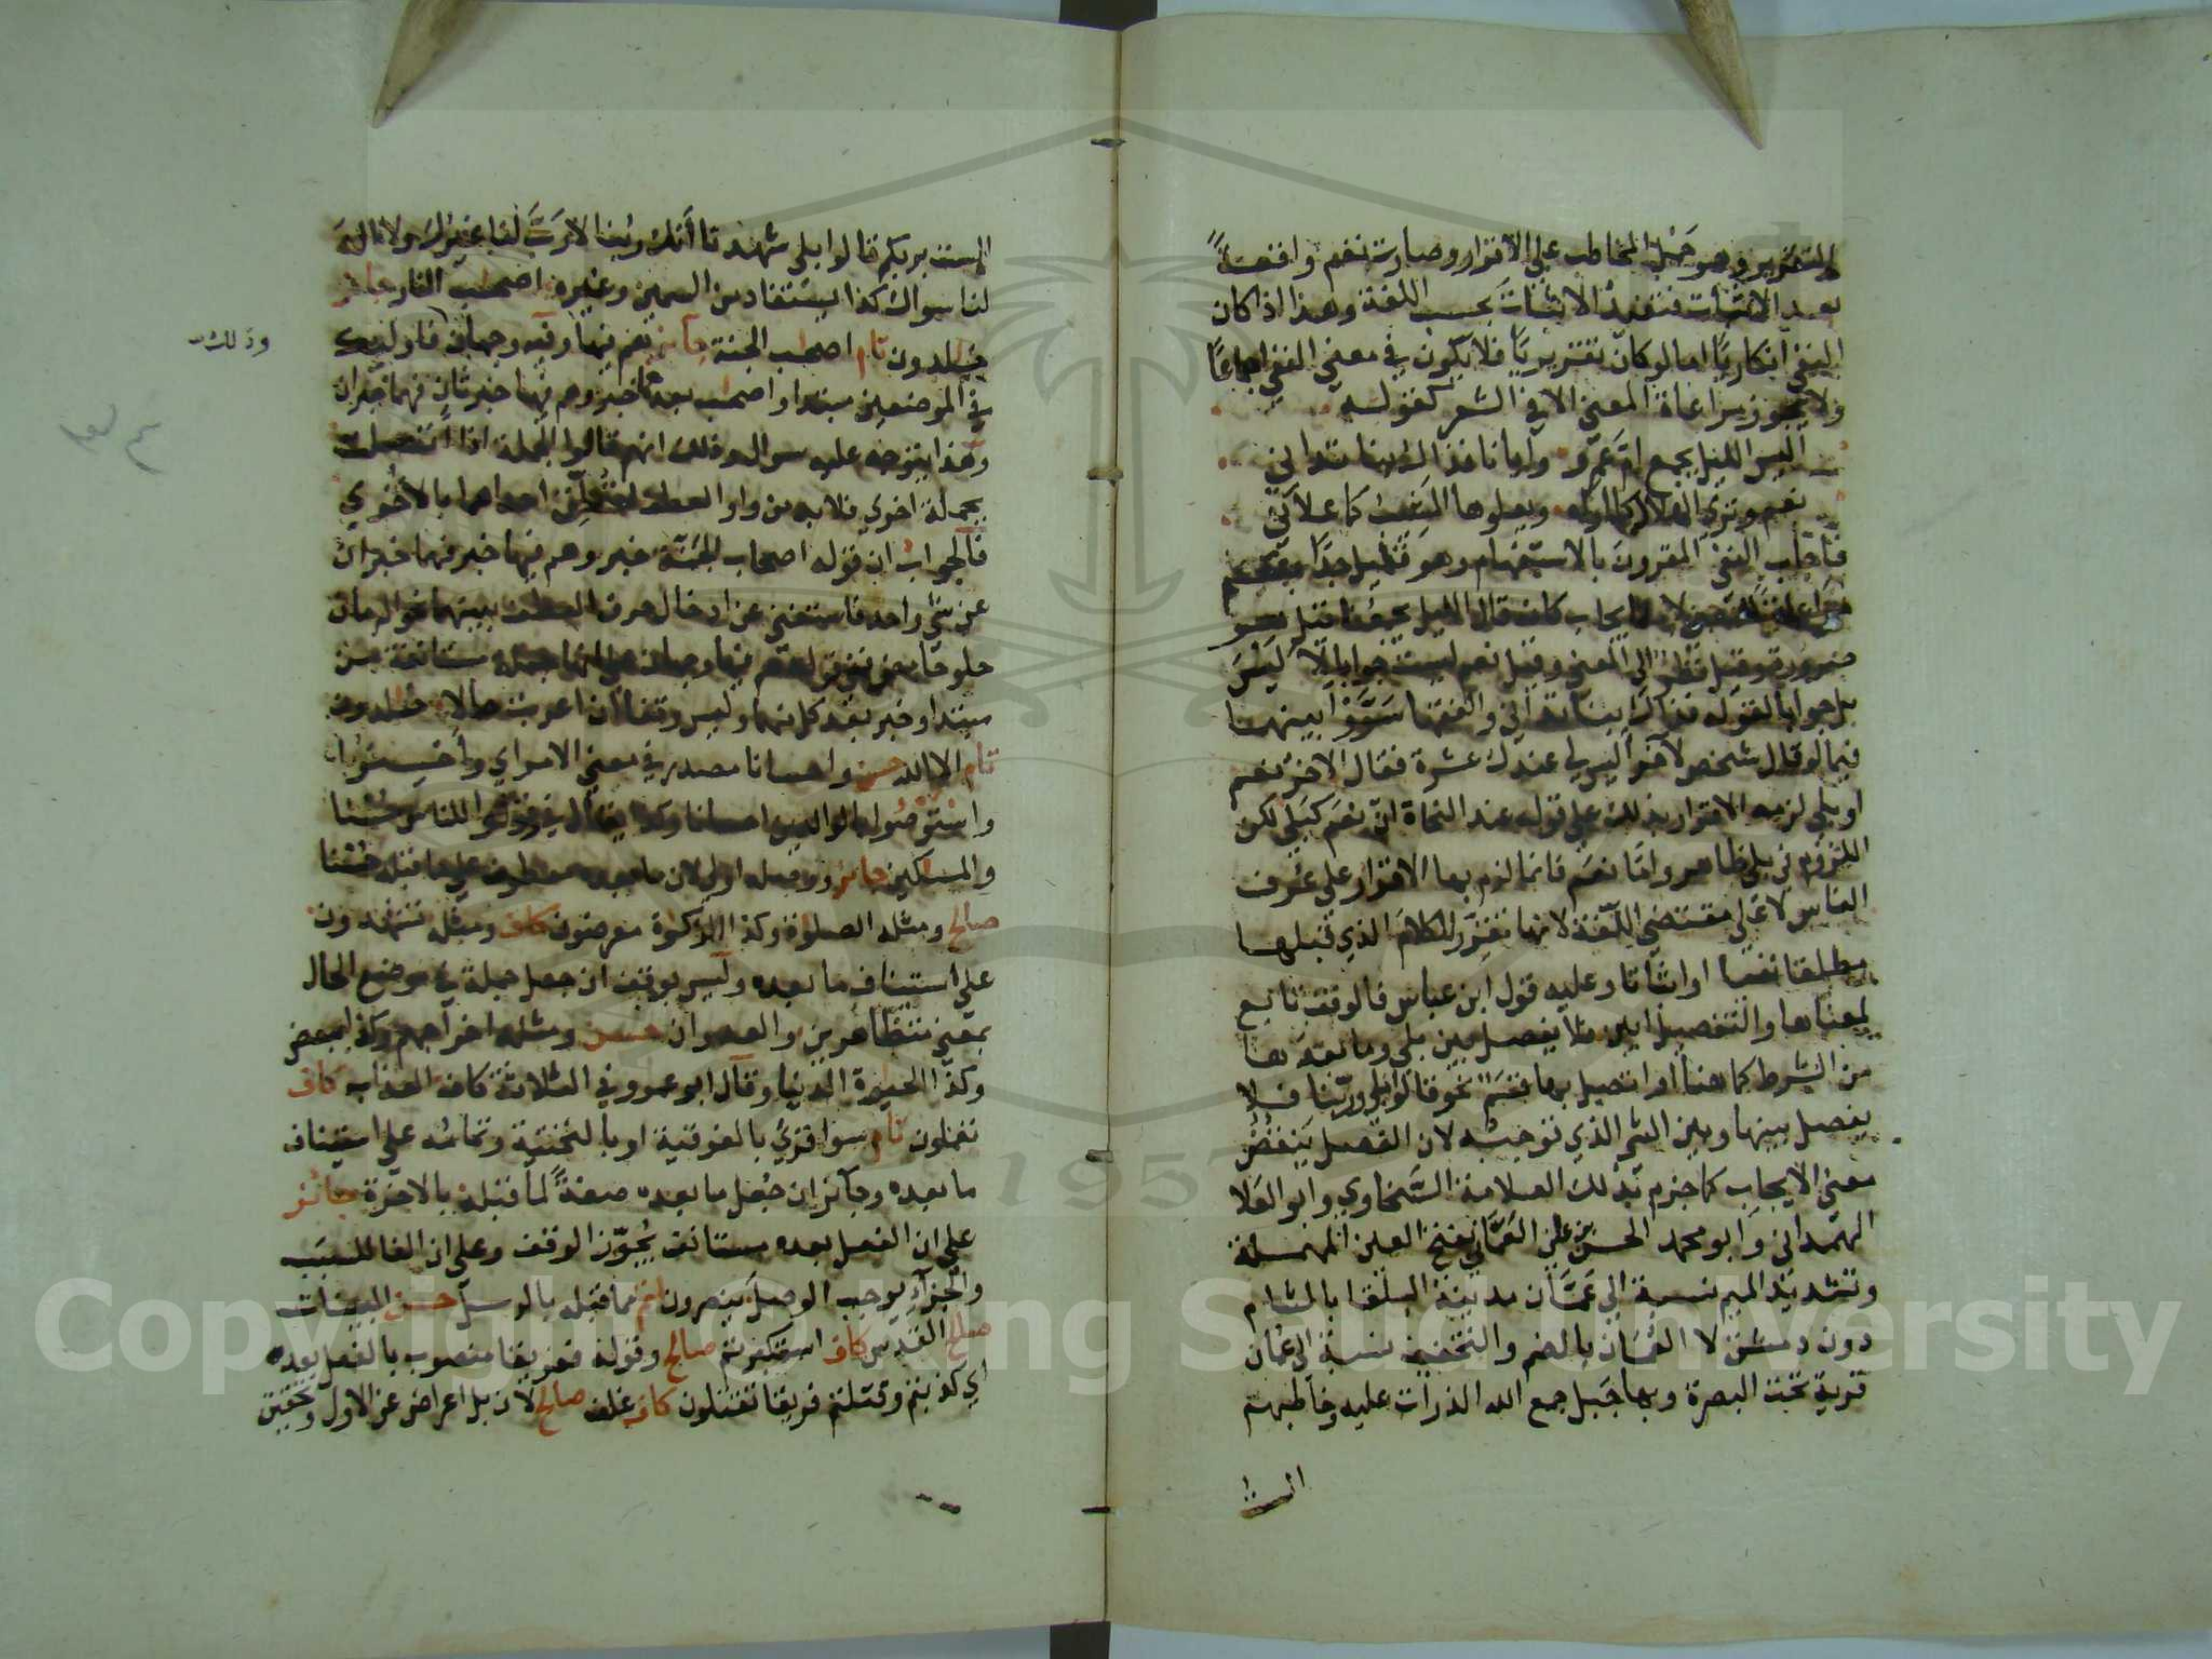 للتقرير وهو حمل المخاطب على الاقرار وصارت نعم واقعة
بعد الاثبات فتفيد الاثبات بحسب اللغة وهذا اذا كان
النفي انكاريا اما لو كان تقريريا فلا يكون في معنى النفي اجماعا
ولا يجوز مراعاة المعنى الا في الشعر كقوله
اليس الليل يجمع ام عمرو وايانا فذاك بنا تداني
نعم وترى الهلال كما اراه ويعلوها المشيب كما علاني
فاجاب النفي المقرون بالاستفهام وهو قليل جدا بنعم
مراعاة للمعنى لانه ايجاب كانه قال الليل يجمعنا قيل هو
ضرورة وقيل نظر الى المعنى وقيل نعم ليست جوابا لا ليس
بل جوابا لقوله فذاك بنا تداني والفقها سووا بينهما
فيما لو قال شخص لاخر اليس لي عندك عشرة فقال الاخر نعم
او بلى لزمه الاقرار بذلك على قوله عند النحاة ان نعم كبلى لكن
اللزوم في بلى ظاهر واما نعم فانما لزم بها الاقرار على عرف
الناس لا على مقتضى اللغة لانها تقرر الكلام الذي قبلها
مطلقا نفيا او اثباتا وعليه قول ابن عباس فالوقف تابع
لمعناها والتفصيل ابين فلا يفصل بين بلى وما بعدها
من الشرط كما هنا او اتصل بها قسم نحو قالوا بلى وربنا فلا
يفصل بينها وبين الشي الذي توجبه لان الفصل ينقض
معنى الايجاب كما جزم بذلك العلامة السخاوي وابو العلا
الهمداني وابو محمد الحسن بن علي العماني بفتح العين المهملة
وتشديد الميم نسبة الى عمان مدينة البلقا بالشام
دون دمشق لا العمان بالضم والتخفيف نسبة الى عمان
قرية تحت البصرة وبها جبل جمع الله الذرات عليه وخاطبهم
الست
الست بربكم قالوا بلى شهدنا انك ربنا لا رب لنا غيرك ولا اله
لنا سواك كذا يستفاد من السمين وغيره اصحب النار جائز
خلدون تام اصحب الجنة جائز نعم فيها وفيه وجهان فاولئك
في الموضعين مبتدا واصحب بعدهما خبر وهم فيها خبر ثان فهما خبران
وهذا يتوجه عليه سوال وذلك انهم قالوا الجملة اذا اتصلت
بجملة اخرى فلا بد من واو العطف لتعلق احداهما بالاخرى
فالجواب ان قوله اصحاب الجنة خبر وهم فيها خبر فهما خبران
عن شي واحد فاستغنى عن ادخال حرف العطف بينهما نحو الرمان
حلو حامض
مبتدا وخبر بعد كل منهما وليس وقفا ان اعربت حالا خلدون
تام الا الله حسن واحسانا مصدر في معنى الامر اي واحسنوا
واستوصوا بالوالدين احسانا وكذا يقال في وقولوا للناس حسنا
والمسكين جائز ووصله اولى لان ما بعده معطوف على ما قبله حسنا
صالح ومثله الصلوة وكذا الزكوة معرضون كاف ومثله تشهدون
على استيناف ما بعده وليس بوقف ان جعل جملة في موضع الحال
بمعنى متظاهرين والعدوان حسن ومثله اخراجهم وكذا ببعض
وكذا الحيوة الدنيا وقال ابو عمرو في الثلاثة كاف العذاب كاف
تعملون تام سوا قري بالفوقية او بالتحتية وتمامه على استيناف
ما بعده وجائز ان جعل ما بعده صفة لما قبله بالاخرة جائز
على ان الفعل بعده مستانف يجوز الوقف وعلى ان الفا للسبب
والجزاء يوجب الوصل ينصرون اتم مما قبله بالرسل حسن البينات
صالح القدس كاف استكبرتم صالح وقوله ففريقا منصوب بالفعل بعده
اي كذبتم وقتلتم فريقا تقتلون كاف غلف صالح لان بل اعراض عن الاول وتحقيق
وذلك